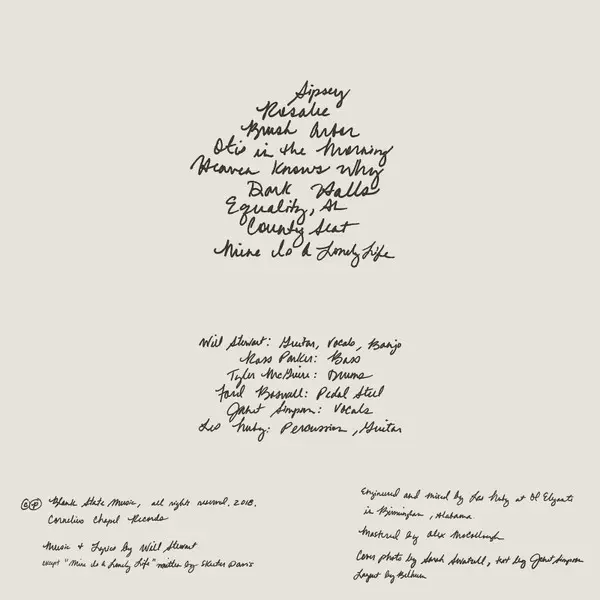 Sipsey
Rosalie
Brush Arbor
Otis in the Morning
Heaven Knows Why
Dark Halls
Equality, AL
County Seat
Mine Is A Lonely Life
Will Stewart: Guitar, Vocals, Banjo
Ross Parker: Bass
Tyler McGuire: Drums
Ford Boswell: Pedal Steel
Janet Simpson: Vocals
Les Nuby: Percussion, Guitar
©℗ Blank State Music, all rights reserved. 2018.
Cornelius Chapel Records
Music + Lyrics by Will Stewart
except "Mine Is A Lonely Life" written by Skeeter Davis
Engineered and mixed by Les Nuby at Ol Elegante
in Birmingham, Alabama
Mastered by Alex McCollough
Cover photo by Sarah, text by Janet Simpson
Layout by